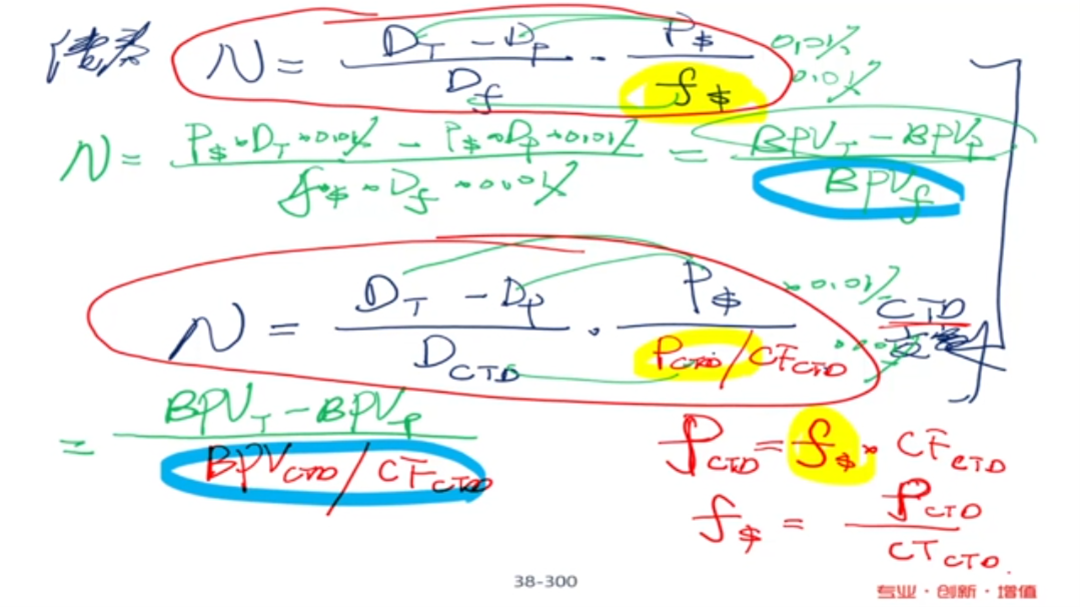 债券 N = (D_T - D_P) / D_f · P_$ / f_$ 0.01% 0.01%
N = (P_$ × D_T × 0.01% - P_$ × D_P × 0.01%) / (f_$ × D_f × 0.01%) = (BPV_T - BPV_P) / BPV_f
N = (D_T - D_P) / D_CTD · P_$ / (P_CTD / CF_CTD) × 0.01% CTD 变量
= (BPV_T - BPV_P) / (BPV_CTD / CF_CTD)
P_CTD = f_$ × CF_CTD
f_$ = P_CTD / CT_CTD.
38-300
专业·创新·增值